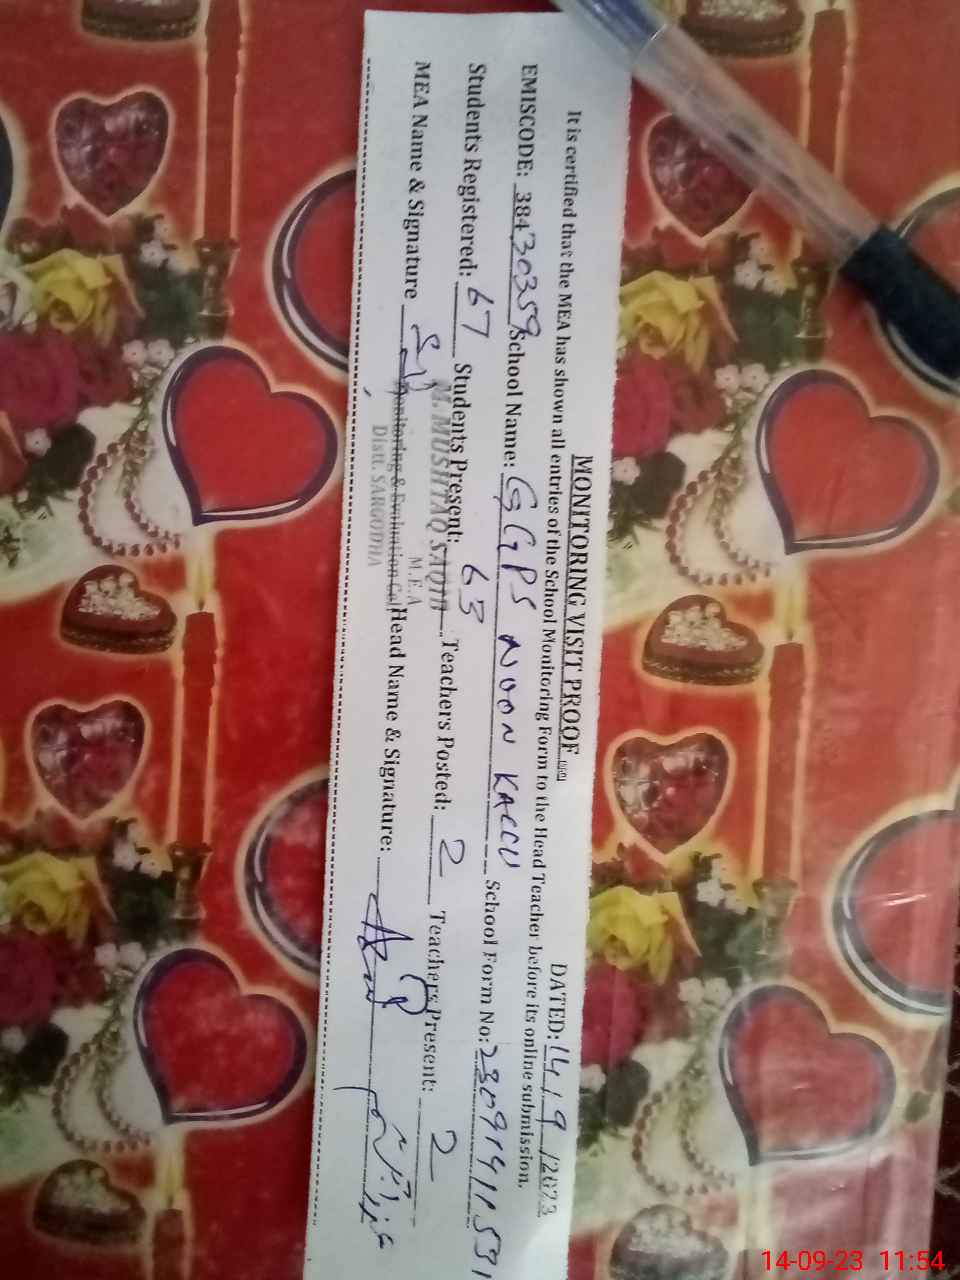 MONITORING VISIT PROOF
DATED: 14 / 9 /2023
It is certified that the MEA has shown all entries of the School Monitoring Form to the Head Teacher before its online submission.
EMISCODE: 38430359 School Name: GGPS NOON KACCU School Form No: 2309141153
Students Registered: 67 Students Present: 63 Teachers Posted: 2 Teachers Present: 2
M. MUSHTAQ SAQIB
M.E.A
MEA Name & Signature Monitoring & Evaluation Cell Head Name & Signature:
Distt. SARGODHA
14-09-23 11:54